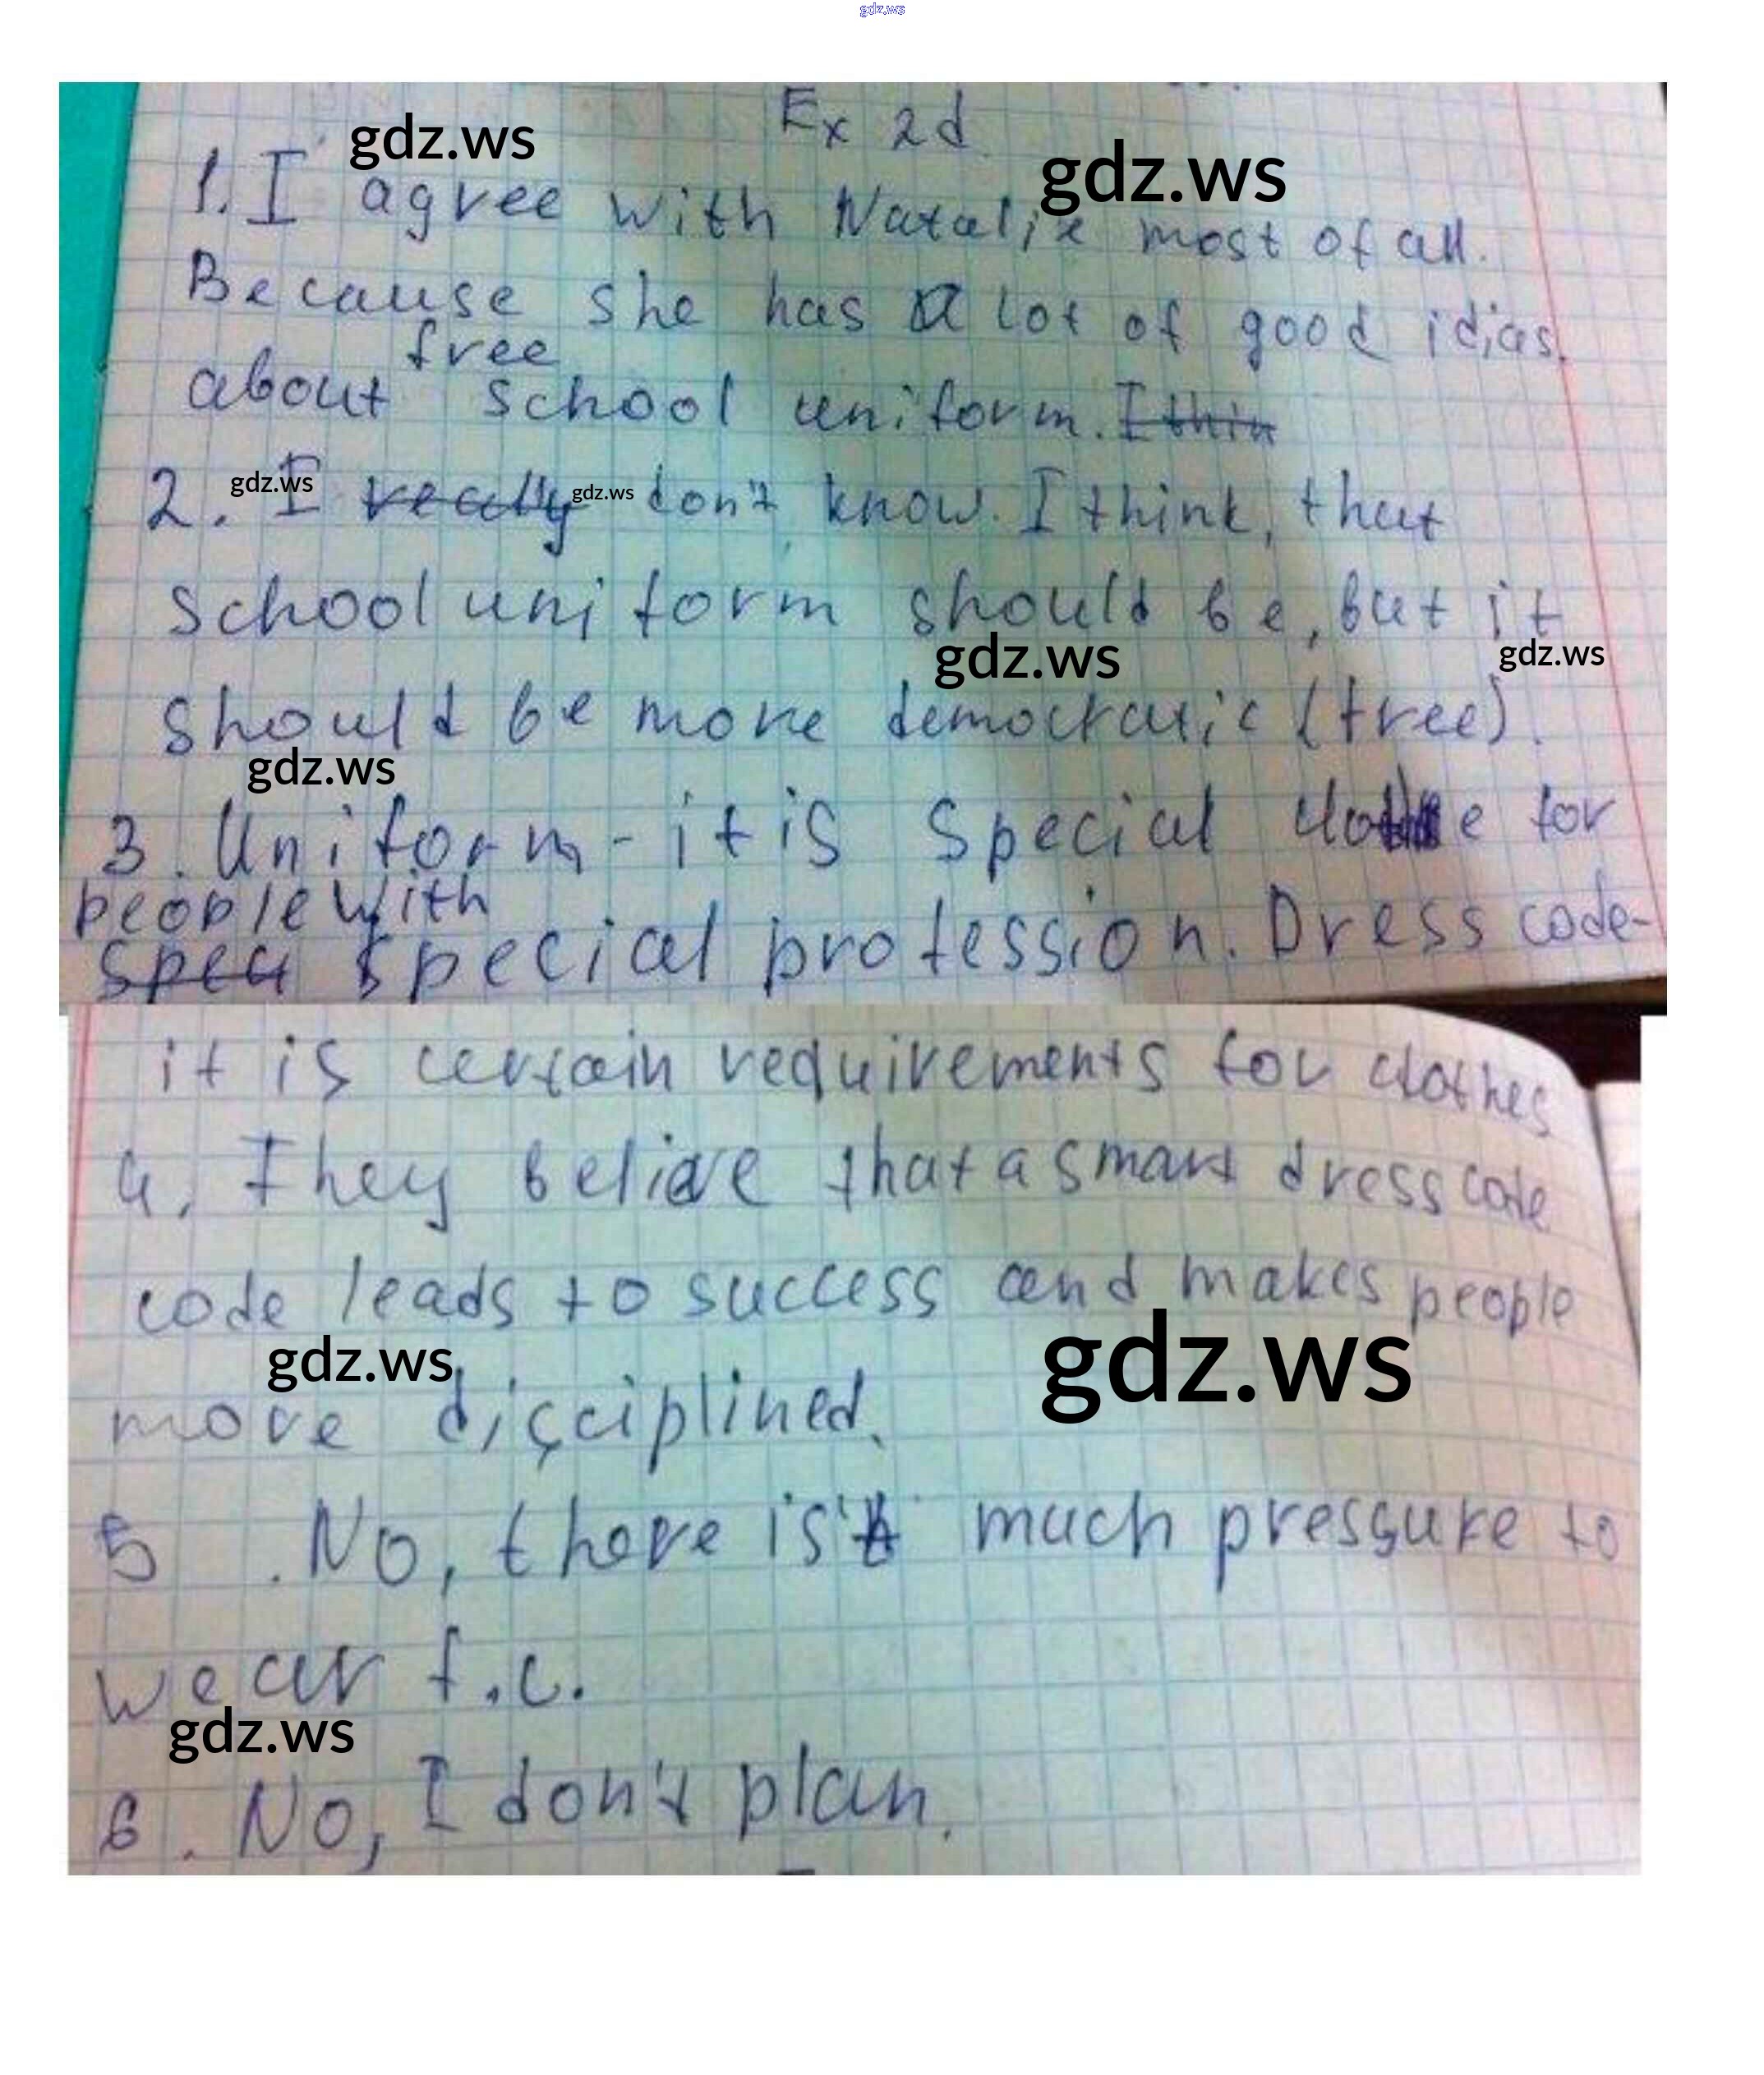 gdz.ws
Ex 2d
gdz.ws
gdz.ws
1. I agree with Natalie most of all.
Because she has a lot of good idias
free
about school uniform. I thin
2. I really don't know. I think, that
gdz.ws
gdz.ws
school uniform should be, but it
gdz.ws
gdz.ws
should be more democratic (free).
gdz.ws
3. Uniform - it is special clothe for
people with
spec special profession. Dress code-
it is certain requirements for clothes
4. They believe that a smart dress code
code leads to success and makes people
gdz.ws
gdz.ws
more disciplined.
5. No, there is't much pressure to
wear f.c.
gdz.ws
6. No, I don't plan.